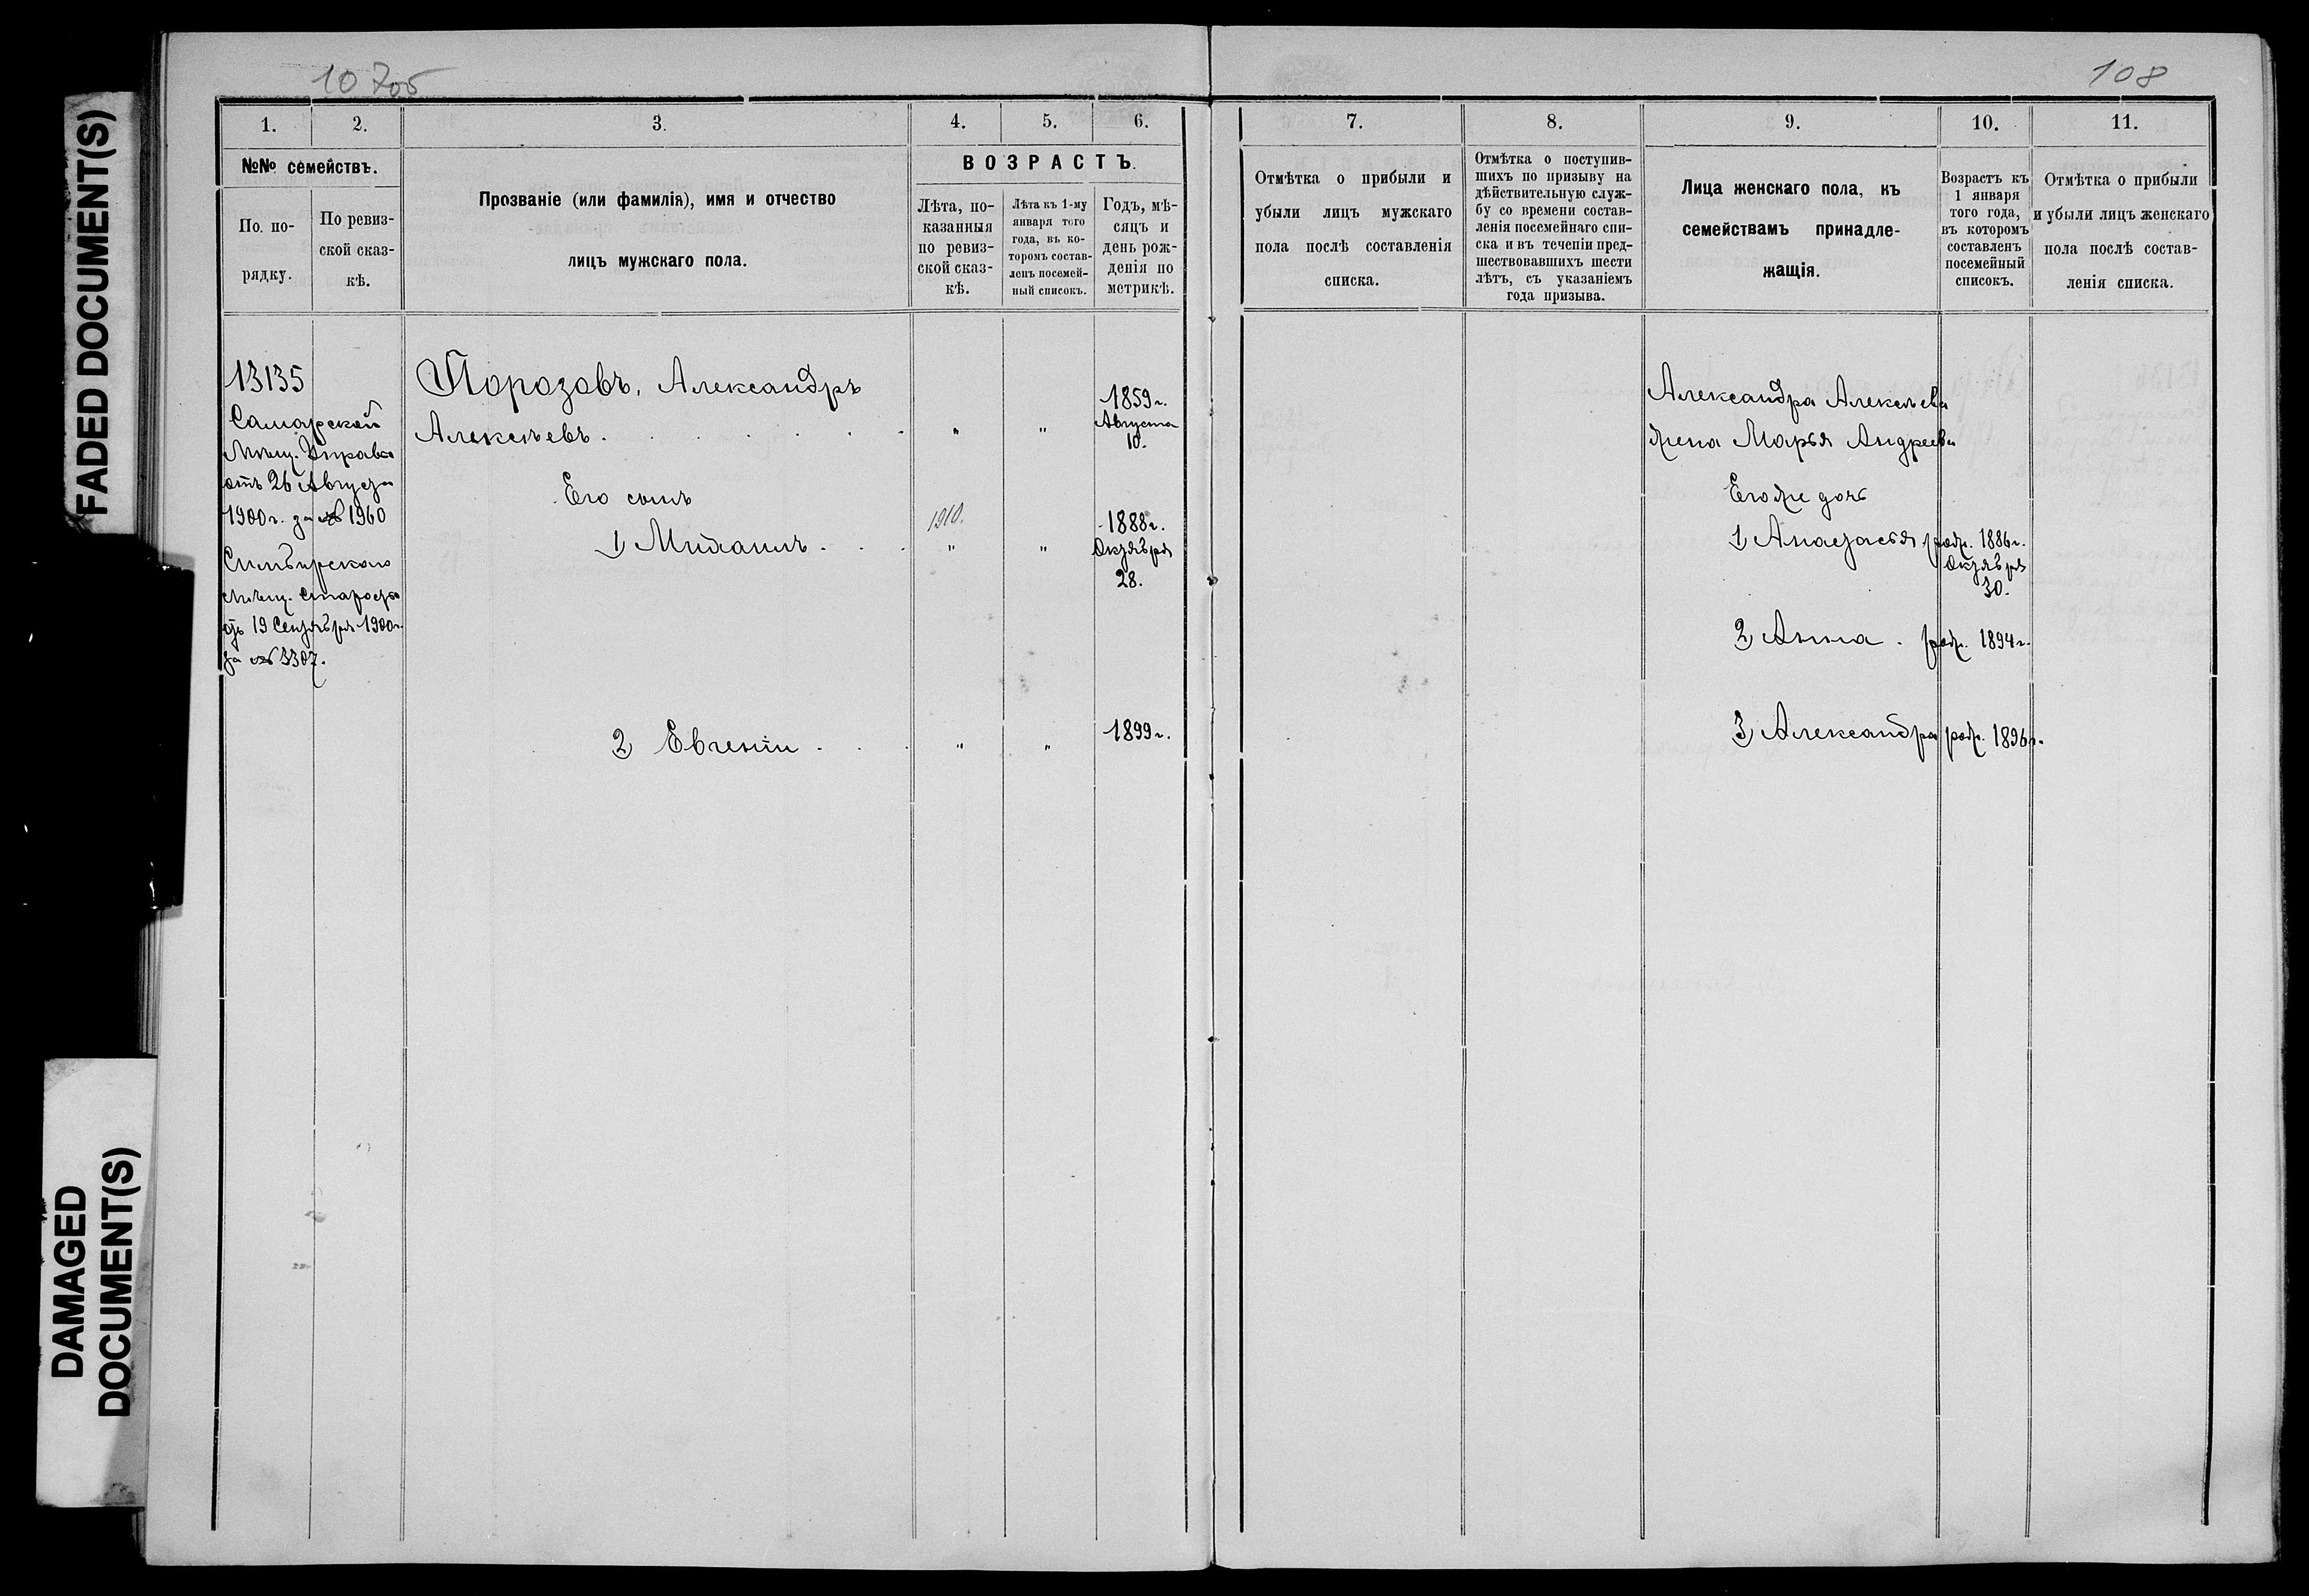 FADED DOCUMENT(S)
DAMAGED
DOCUMENT(S)
10705
108
1.
2.
3.
4.
5.
6.
№№ семействъ.
По по-
рядку.
По ревиз-
ской сказ-
кѣ.
Прозваніе (или фамилія), имя и отчество
лицъ мужскаго пола.
ВОЗРАСТЪ.
Лѣта, по-
казанныя
по ревиз-
ской сказ-
кѣ.
Лѣта къ 1-му
января того
года, въ ко-
торомъ состав-
ленъ посемей-
ный списокъ.
Годъ, мѣ-
сяцъ и
день рож-
денія по
метрикѣ.
13135
Самарской
Мѣщ. Управы
отъ 26 Августа
1900 г. за № 1960
Симбирскаго
Мѣщ. Старосты
отъ 19 Сентября 1900 г.
за № 3307.
Порозовъ, Александръ
Алексѣевъ . . . . . . " "
1859 г.
Августа
10.
Его сынъ
1910.
1) Михаилъ . . . " "
1888 г.
Октября
28.
2) Евгеній . . . " " 1899 г.
7.
8.
9.
10.
11.
Отмѣтка о прибыли и
убыли лицъ мужскаго
пола послѣ составленія
списка.
Отмѣтка о поступив-
шихъ по призыву на
дѣйствительную служ-
бу со времени состав-
ленія посемейнаго спи-
ска и въ теченіи пред-
шествовавшихъ шести
лѣтъ, съ указаніемъ
года призыва.
Лица женскаго пола, къ
семействамъ принадле-
жащія.
Возрастъ къ
1 января
того года,
въ которомъ
составленъ
посемейный
списокъ.
Отмѣтка о прибыли
и убыли лицъ женскаго
пола послѣ состав-
ленія списка.
Александра Алексѣева
жена Марья Андреева
Его же дочь
1) Анастасія род. 1886 г.
Октября
30.
2) Анна . род. 1894 г.
3) Александра род. 1896 г.